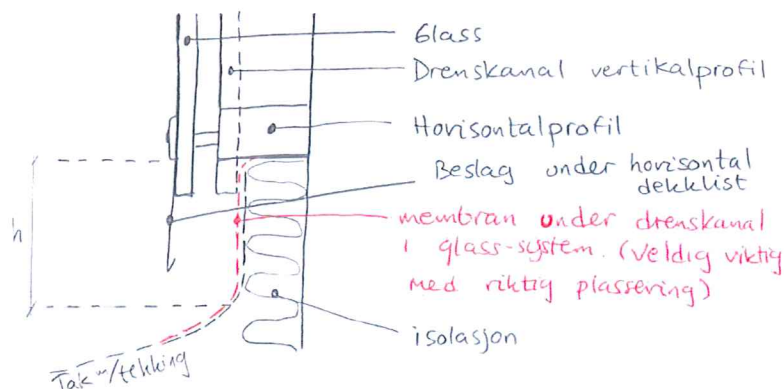 Glass
Drenskanal vertikalprofil
Horisontalprofil
Beslag under horisontal
dekklist
h
membran under drenskanal
i glass-system. (Veldig viktig
med riktig plassering)
isolasjon
Tak m/tekking